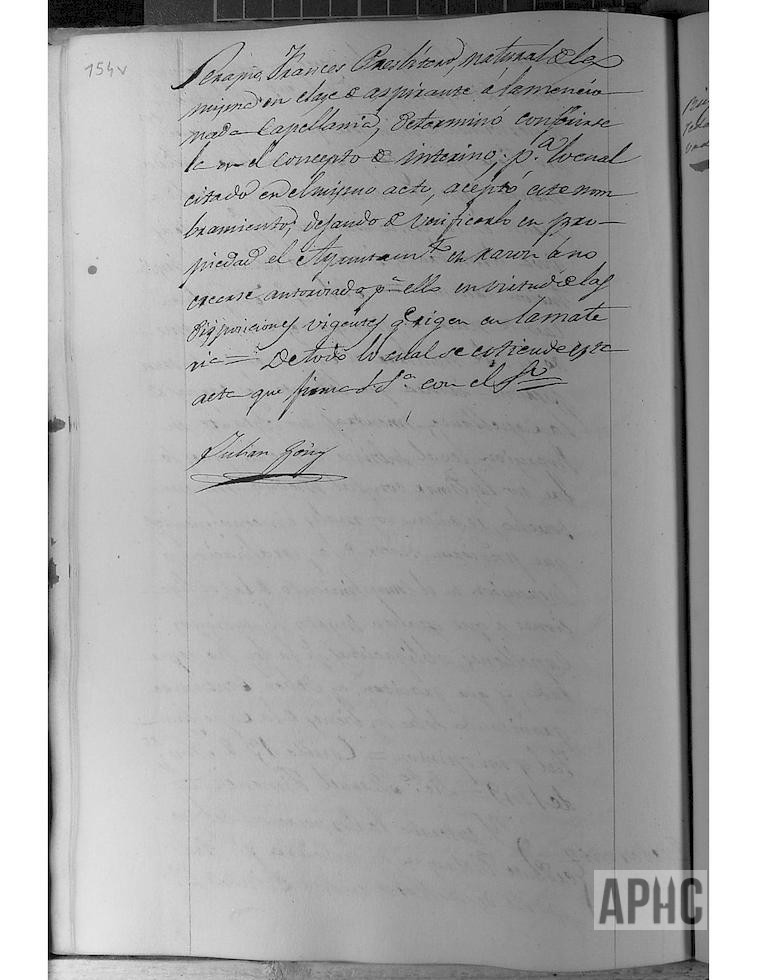 154v
Serapio Frances Presbitero, natural de la
misma en clase de aspirante á la mencio
nada Capellania, determinó conferirse
le en el concepto de interino, p.ª lo cual
citado en el mismo acto, aceptó este nom
bramiento, dejando de verificarlo en pro-
piedad el Ayuntam.to en razon á no
creerse autorizado p.ª ello en virtud de las
disposiciones vigentes q.e rigen en la mate
ria = De todo lo cual se estiende esta
acta que firma S.S.ª con el S.rio
Julian Goñy
APHC